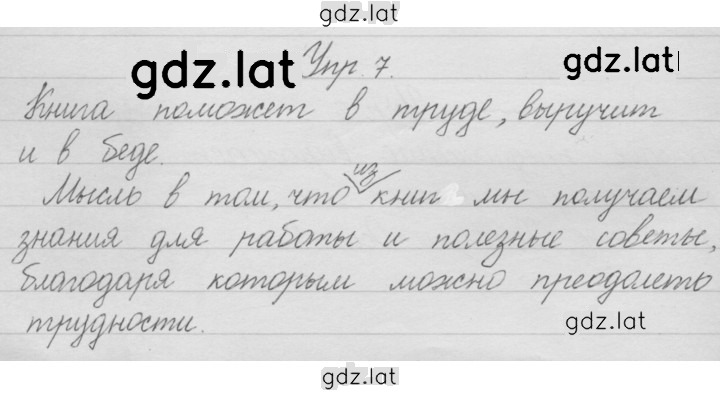 gdz.lat
gdz.lat Упр. 7. gdz.lat
Книга поможет в труде, выручит
и в беде.
Мысль в том, что из книг мы получаем
знания для работы и полезные советы,
благодаря которым можно преодолеть
трудности. gdz.lat
gdz.lat